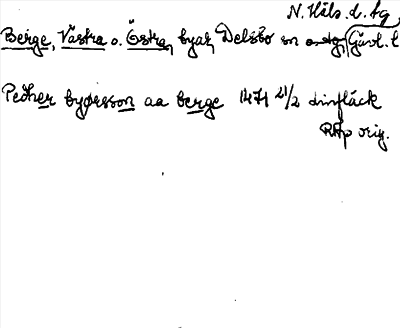 N. Häls. d. tg
Berge, Västra o. Östra, byar, Delsbo sn Gävl. l
Pedher byörsson aa berge 1471 21/2 dinfläck
RAp orig.